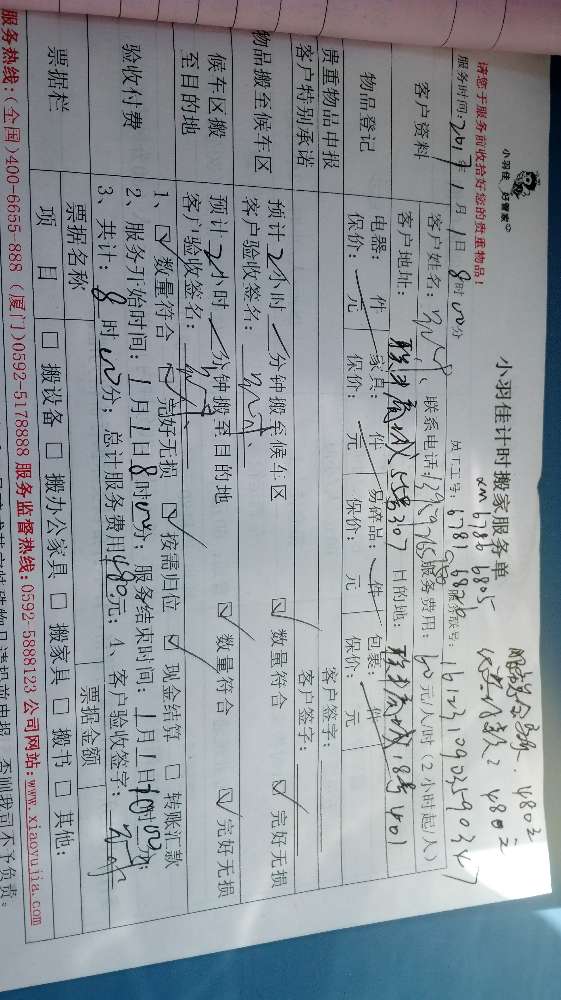 小羽佳 好管家
小羽佳计时搬家服务单
服务总金额: 480元
xm 6780 6805
请您于服务前收拾好您的贵重物品!
员工工号: 6781 6826
服务时间: 2017年1月1日8时00分
161231090359034
客户资料
客户姓名:
联系电话:
服务费用: 60元/人/时 (2小时起/人)
客户地址: 55号307 目的地: 18号401
物品登记
电器: 件 家具: 件 易碎品: 件 包裹: 件
保价: 元 保价: 元 保价: 元 保价: 元
贵重物品申报
客户签字:
客户特别承诺
客户签字:
物品搬至候车区
预计2小时 分钟搬至候车区 数量符合 完好无损
客户验收签名:
候车区搬至目的地
预计2小时 分钟搬至目的地 数量符合 完好无损
客户验收签名:
验收付费
1、 数量符合 完好无损 按需归位 现金结算 转账汇款
2、服务开始时间: 1月1日8时00分; 服务结束时间: 1月1日
3、共计: 8时00分; 总计服务费用480元; 4、客户验收签字:
票据栏
票据名称 票据金额
项目 搬设备 搬办公家具 搬家具 搬书 其他:
服务热线:(全国)400-6655-888 (厦门)0592-5178888 服务监督热线:0592-5888123 公司网站:www.xiaoyujia.com